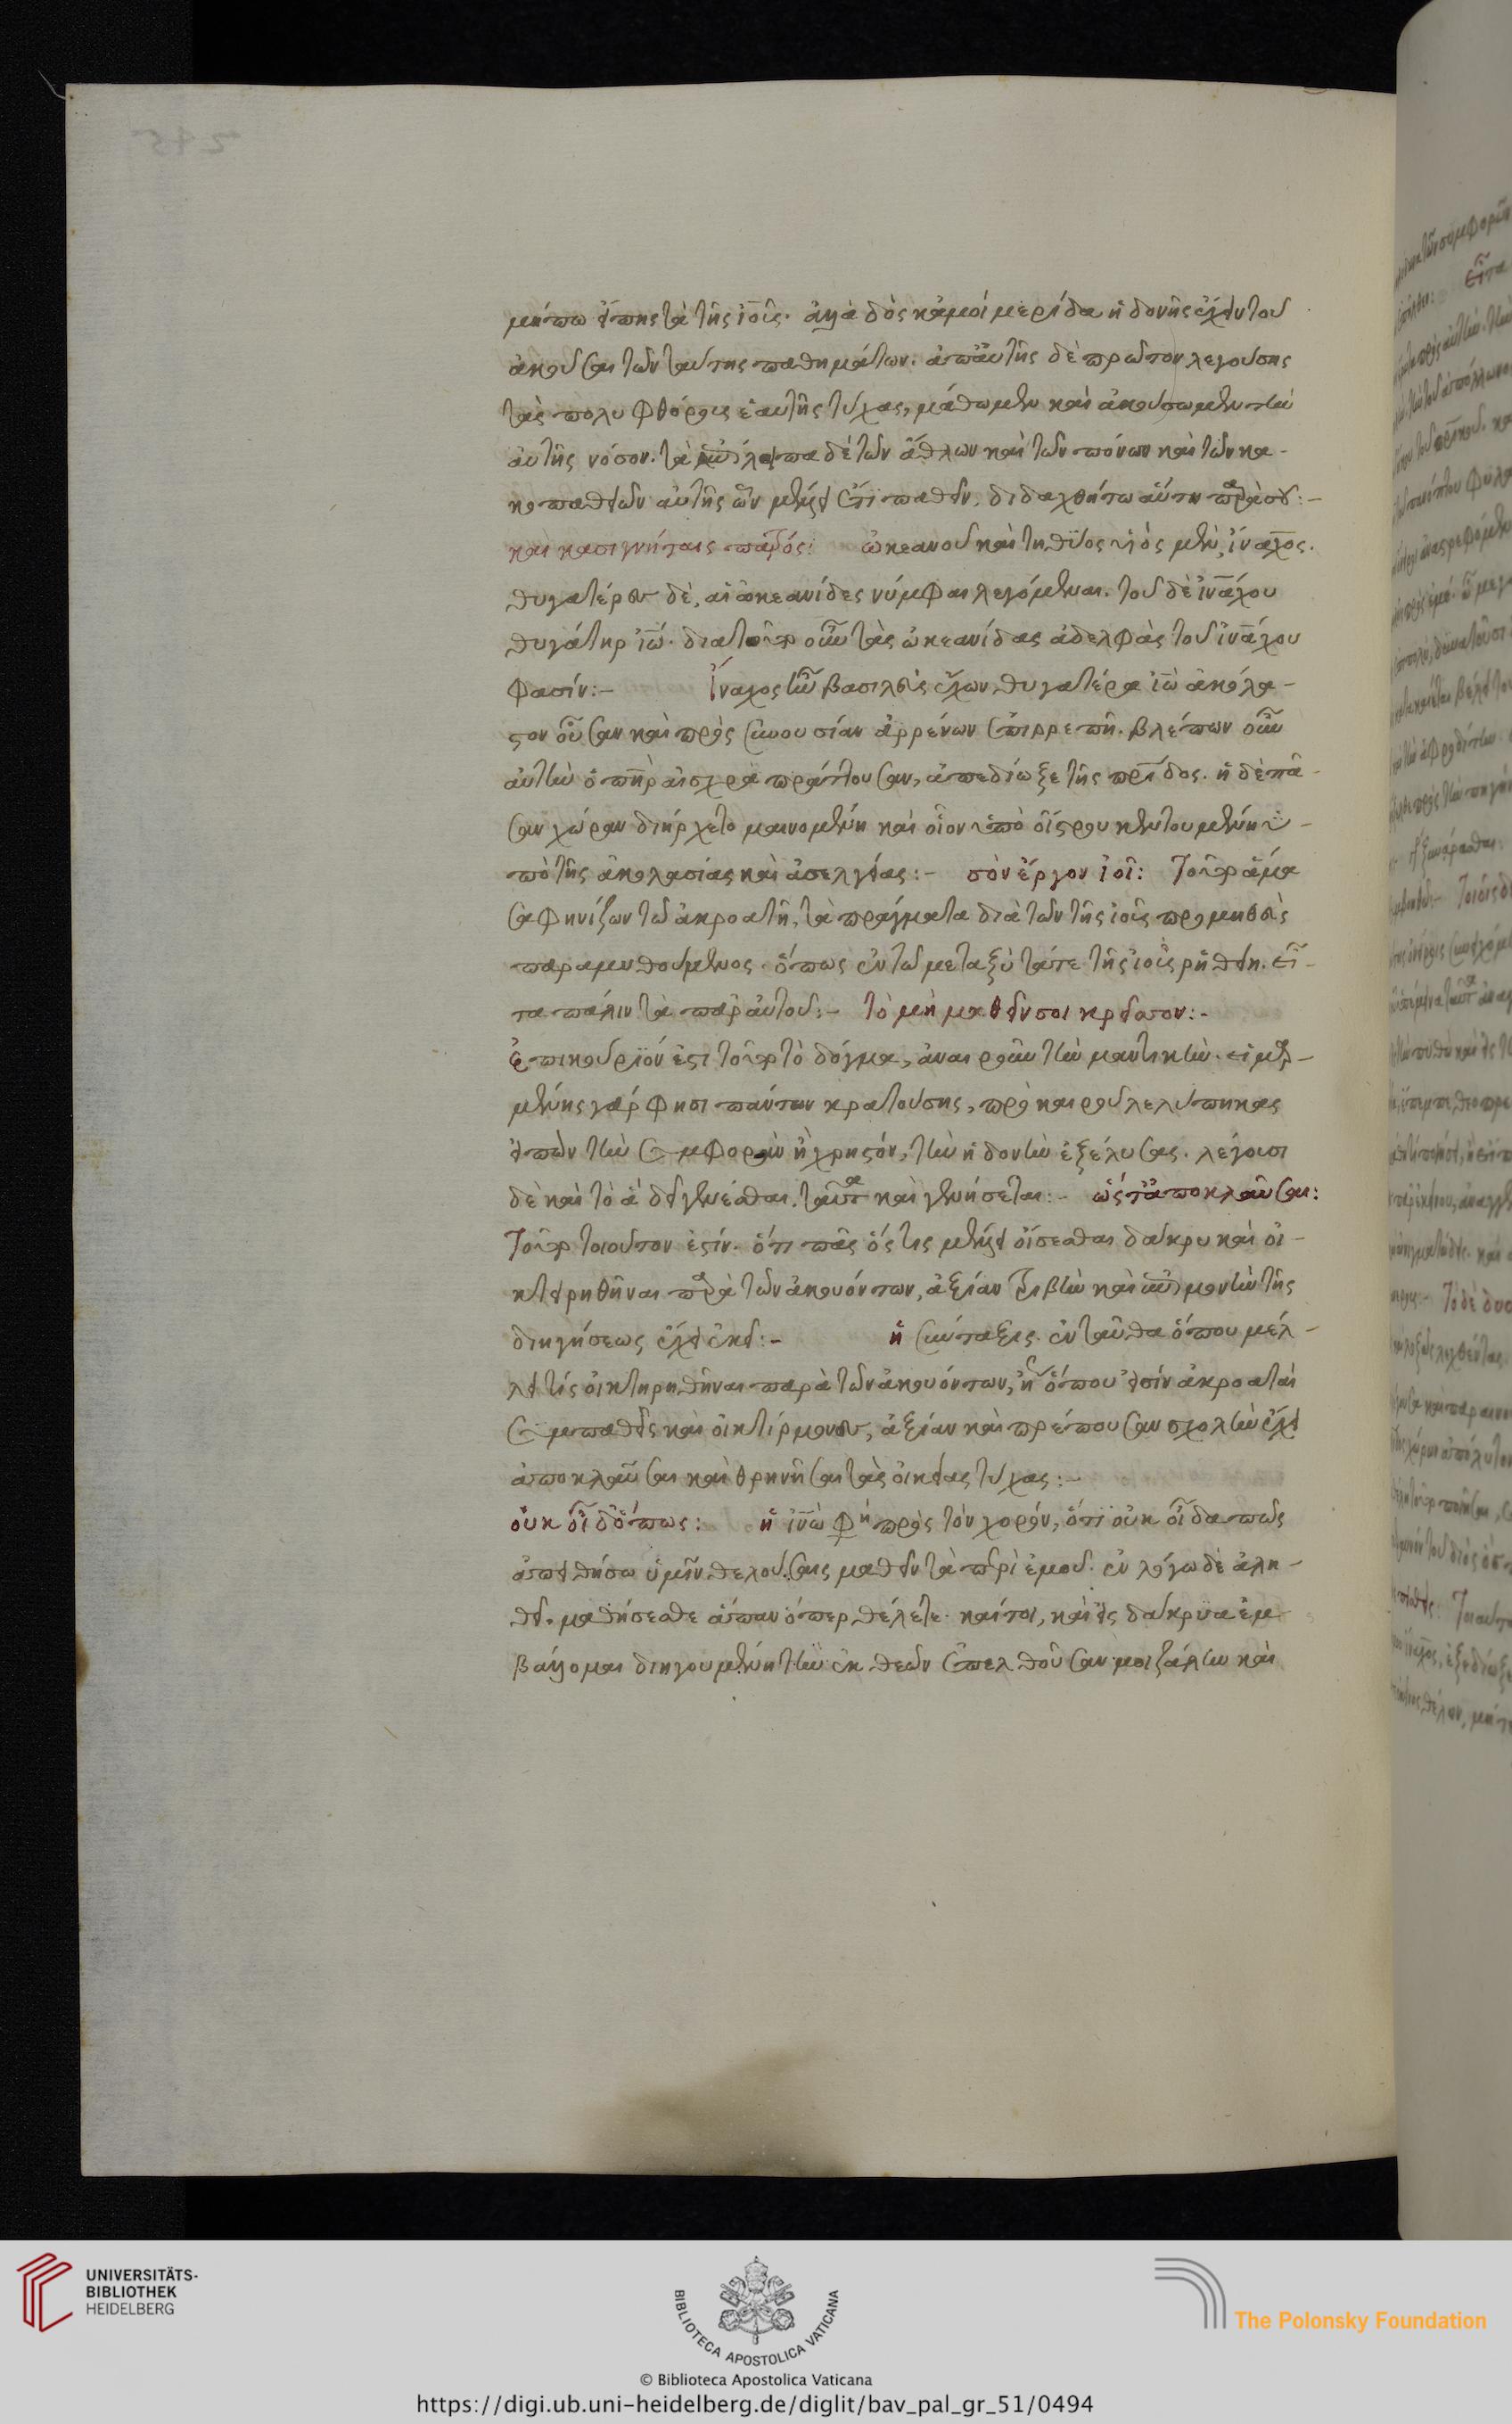 μήπω εἴπῃς τὰ τῆς ἰοῦς. ἀλλὰ δὸς κἀμοὶ μερίδα ἡδονῆς ἔχειν τοῦ
ἀκοῦσαι τῶν ταύτης παθημάτων. ἀπ' αὐτῆς δὲ πρῶτον λεγούσης
τὰς πολυφθόρους ἑαυτῆς τύχας, μάθωμεν καὶ ἀκούσωμεν τὴν
αὐτῆς νόσον. τὰ λοιπὰ δὲ τῶν ἄθλων καὶ τῶν πόνων καὶ τῶν κα-
κοπαθειῶν αὐτῆς ὧν μέλλει ἔτι παθεῖν, διδαχθήτω αὕτη παρὰ σοῦ:-
καὶ κασιγνήταις πατρός: ὠκεανοῦ καὶ τηθύος υἱὸς μὲν, ἴναχος.
θυγατέρες δὲ, αἱ ὠκεανίδες νύμφαι λεγόμεναι. τοῦ δὲ ἰνάχου
θυγάτηρ ἰώ. διὰ τοῦτο οὖν τὰς ὠκεανίδας ἀδελφὰς τοῦ ἰνάχου
φασίν:- Ἴναχος ἦν βασιλεὺς ἔχων θυγατέρα ἰὼ ἀκόλα-
στον οὖσαν καὶ πρὸς συνουσίαν ἀρρένων ἐπιρρεπῆ. βλέπων οὖν
αὐτὴν ὁ πατὴρ αἰσχρὰ πράττουσαν, ἀπεδίωξε τῆς πατρίδος. ἡ δὲ πᾶ-
σαν χώραν διήρχετο μαινομένη καὶ οἷον ὑπὸ οἴστρου κεντουμένη ὑ-
πὸ τῆς ἀκολασίας καὶ ἀσελγείας:- σὸν ἔργον ἰοῖ: Τοῦτο ἅμα
σαφηνίζων τῷ ἀκροατῇ, τὰ πράγματα διὰ τῶν τῆς ἰοῦς προμηθεὺς
παραμυθούμενος. ὅπως ἐν τῷ μεταξὺ τά τε τῆς ἰοῦς ῥηθείη. εἶ-
τα πάλιν τὰ παρ' αὐτοῦ:- τὸ μὴ μαθεῖν σοι κρεῖσσον:-
Ἐπικούριόν ἐστι τοῦτο τὸ δόγμα, ἀναιροῦν τὴν μαντικήν. εἱμαρ-
μένης γάρ φησι πάντων κρατούσης, πρὸ καιροῦ λελύπηκας
εἰπὼν τὴν συμφορὰν ἢ χρηστόν, τὴν ἡδονὴν ἐξέλυσας. λέγουσι
δὲ καὶ τὸ ἃ δεῖ γενέσθαι, ταῦτα καὶ γενήσεται:- ὡς τἀποκλαῦσαι:
Τοῦτο τοιοῦτον ἐστίν. ὅτι πᾶς ὅστις μέλλει οἴσεσθαι δάκρυ καὶ οἰ-
κτειρηθῆναι παρὰ τῶν ἀκουόντων, ἀξίαν τριβὴν καὶ μονὴν τῆς
διηγήσεως ἔχει ἐκεῖ:- ἡ σύνταξις. ἐνταῦθα ὅπου μέλ-
λει τίς οἰκτηρηθῆναι παρὰ τῶν ἀκουόντων, ἢ ὅπου εἰσὶν ἀκροαταὶ
συμπαθεῖς καὶ οἰκτίρμονες, ἀξίαν καὶ πρέπουσαν σχολὴν ἔχει
ἀποκλαῦσαι καὶ θρηνῆσαι τὰς οἰκείας τύχας:-
οὐκ οἶδ' ὅπως: ἡ ἰνὼ φη πρὸς τὸν χορόν, ὅτι οὐκ οἶδα πῶς
ἀπειθήσω ὑμῖν θελούσαις μαθεῖν τὰ περὶ ἐμοῦ. ἐν λόγῳ δὲ ἀλη-
θεῖ μαθήσεσθε ἅπαν ὅπερ θέλετε. καίτοι, καὶ εἰς δάκρυα ἐμ-
βάλλομαι διηγουμένη τὴν ἐκ θεῶν ἐπελθοῦσαν μοι ζάλην καὶ
UNIVERSITÄTS-
BIBLIOTHEK
HEIDELBERG
BIBLIOTECA APOSTOLICA VATICANA
The Polonsky Foundation
© Biblioteca Apostolica Vaticana
https://digi.ub.uni-heidelberg.de/diglit/bav_pal_gr_51/0494